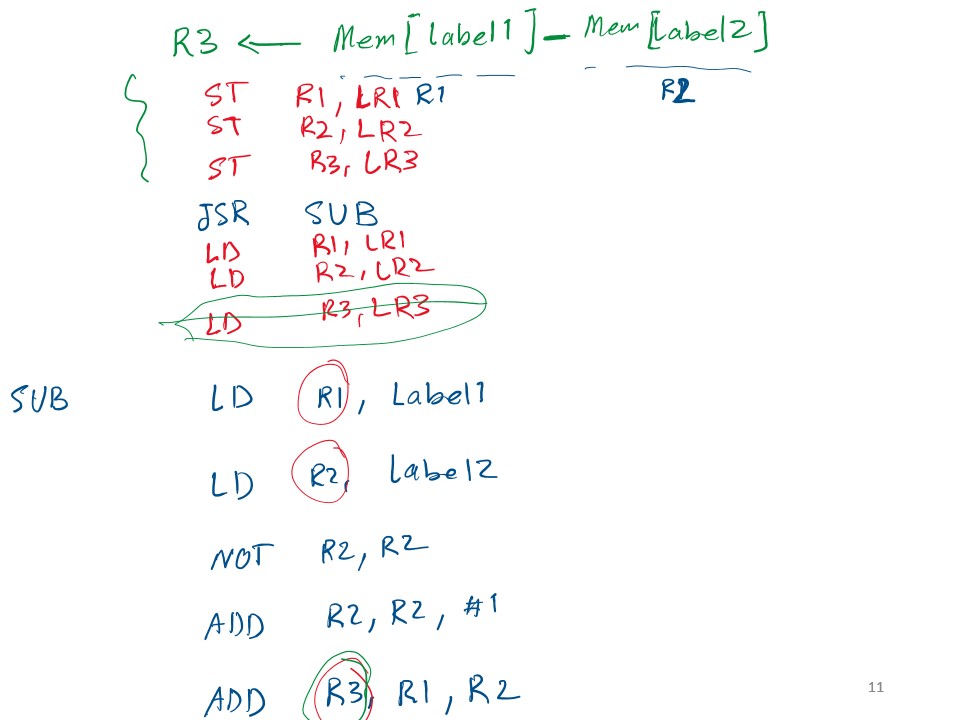 R3 ← Mem[label1] – Mem[label2]
ST R1, LR1 R1 R2
ST R2, LR2
ST R3, LR3
JSR SUB
LD R1, LR1
LD R2, LR2
LD R3, LR3
SUB LD R1, Label1
LD R2, label2
NOT R2, R2
ADD R2, R2, #1
ADD R3, R1, R2
11